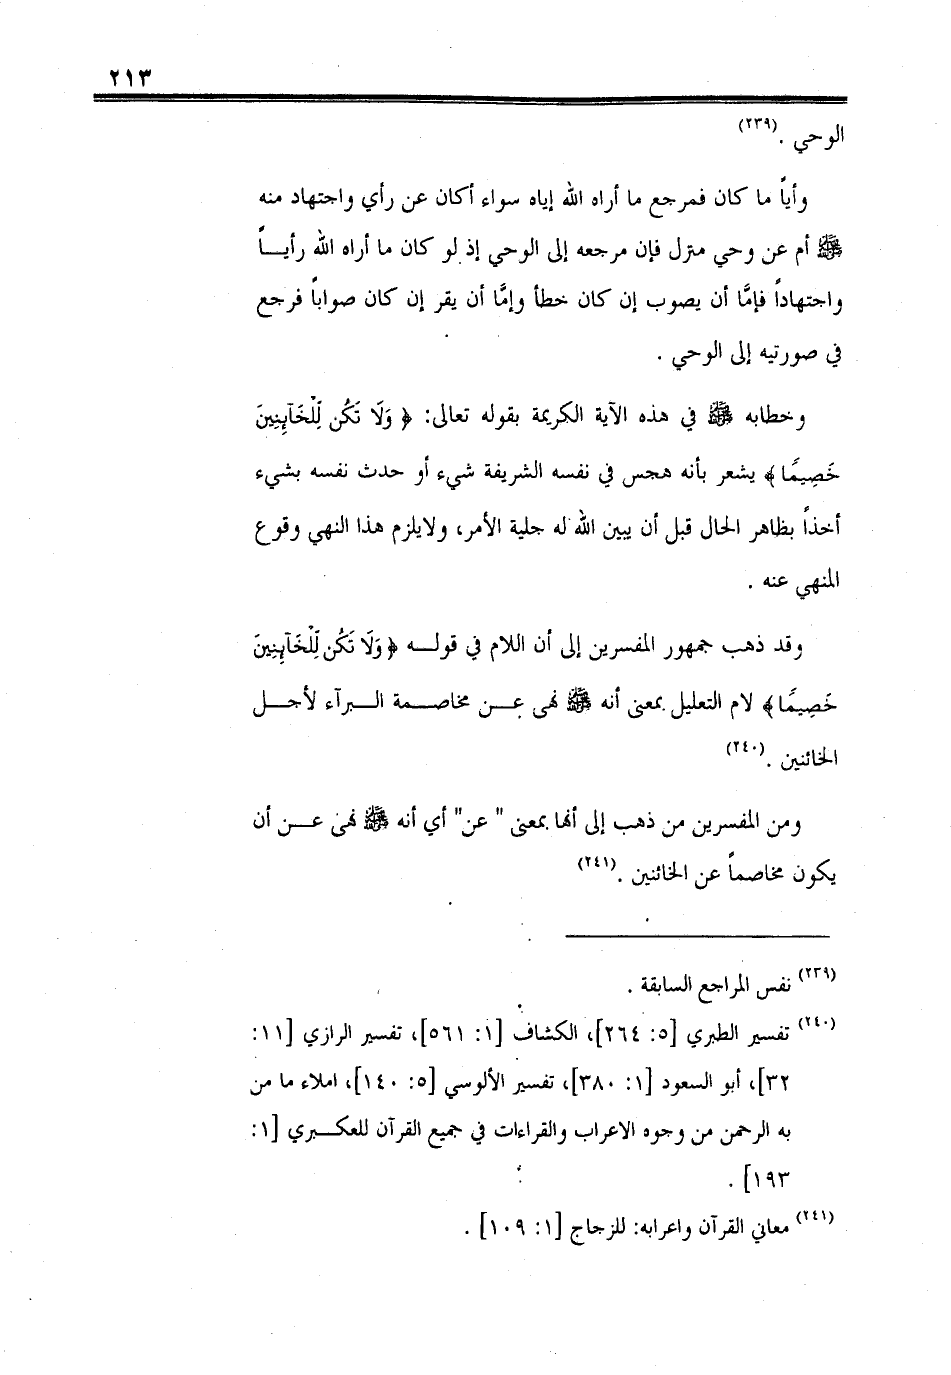 ٢١٣
الوحي .(٢٣٩)
وأياً ما كان فمرجع ما أراه الله إياه سواء أكان عن رأي واجتهاد منه
ﷺ أم عن وحي منزل فإن مرجعه إلى الوحي إذ لو كان ما أراه الله رأيــاً
واجتهاداً فإمَّا أن يصوب إن كان خطأ وإمَّا أن يقر إن كان صواباً فرجع
في صورتيه إلى الوحي .
وخطابه ﷺ في هذه الآية الكريمة بقوله تعالى: ﴿ وَلَا تَكُن لِّلْخَآئِنِينَ
خَصِيمًا ﴾ يشعر بأنه هجس في نفسه الشريفة شيء أو حدث نفسه بشيء
أخذاً بظاهر الحال قبل أن يبين الله له جلية الأمر، ولايلزم هذا النهي وقوع
المنهي عنه .
وقد ذهب جمهور المفسرين إلى أن اللام في قولــه ﴿ وَلَا تَكُن لِّلْخَآئِنِينَ
خَصِيمًا ﴾ لام التعليل بمعنى أنه ﷺ نهى عــن مخاصــمة الــبرآء لأجــل
الخائنين .(٢٤٠)
ومن المفسرين من ذهب إلى أنها بمعنى " عن" أي أنه ﷺ نهى عــن أن
يكون مخاصماً عن الخائنين .(٢٤١)
(٢٣٩) نفس المراجع السابقة .
(٢٤٠) تفسير الطبري [٥: ٢٦٤]، الكشاف [١: ٥٦١]، تفسير الرازي [١١:
٣٢]، أبو السعود [١: ٣٨٠]، تفسير الألوسي [٥: ١٤٠]، املاء ما من
به الرحمن من وجوه الاعراب والقراءات في جميع القرآن للعكــبري [١:
١٩٣] .
(٢٤١) معاني القرآن واعرابه: للزجاج [١: ١٠٩] .